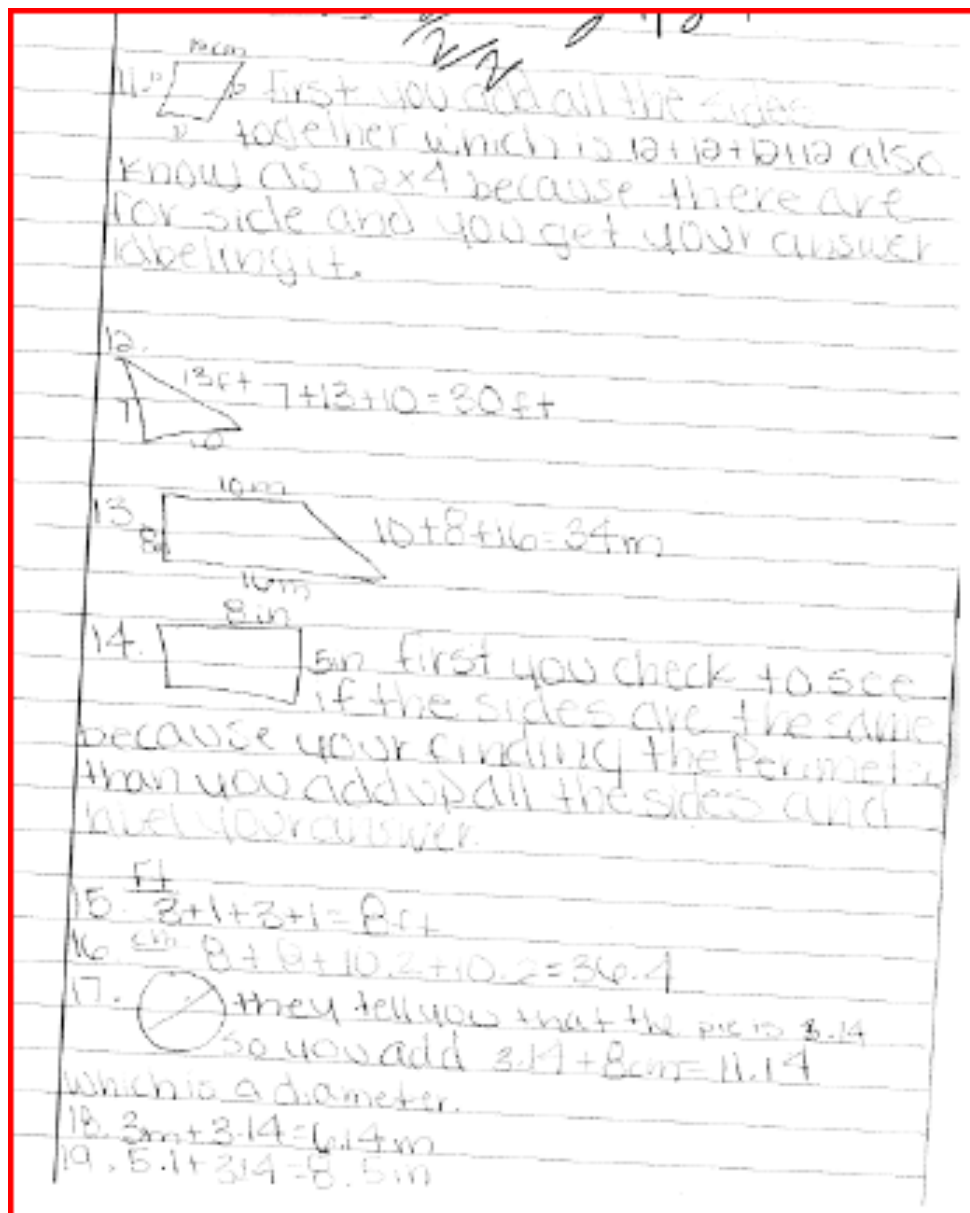 12cm
11. 12 12 First you add all the sides
12 together which is 12+12+12+12 also
know as 12x4 because there are
for side and you get your answer
labeling it.
12.
13ft 7+13+10=30ft
7
10
10m
13. 8m 10+8+16=34m
16m
8in
14. 5in first you check to see
if the sides are the same
because your finding the Perimeter
than you add up all the sides and
your answer.
ft
15. 3+1+3+1=8ft
16. cm 8+8+10.2+10.2=36.4
17. they tell you that the pie is 3.14
so you add 3.14+8cm=11.14
which is a diameter.
18. 3m+3.14=6.14m
19. 5.1+3.14=8.5in